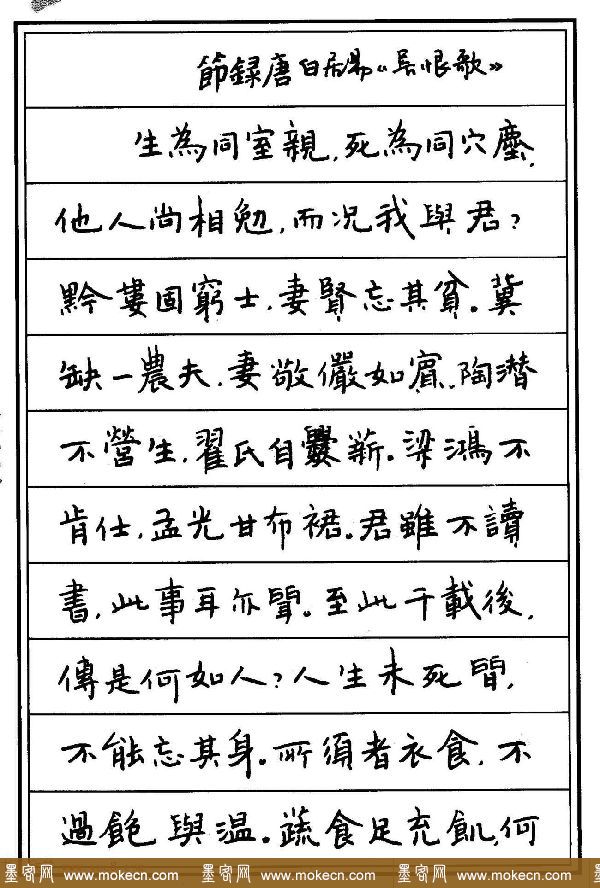 節録唐白居易《長恨歌》
生為同室親,死為同穴塵,
他人尚相勉,而况我與君?
黔婁固窮士,妻賢忘其貧。冀
缺一農夫,妻敬儼如賓,陶潛
不營生,翟氏自爨薪。梁鴻不
肯仕,孟光甘布裙。君雖不讀
書,此事耳亦聞。至此千載後,
傳是何如人?人生未死間,
不能忘其身。所須者衣食,不
過飽與温。蔬食足充飢,何
墨客网 www.mokecn.com 墨客网 www.mokecn.com 墨客网 www.mokecn.com